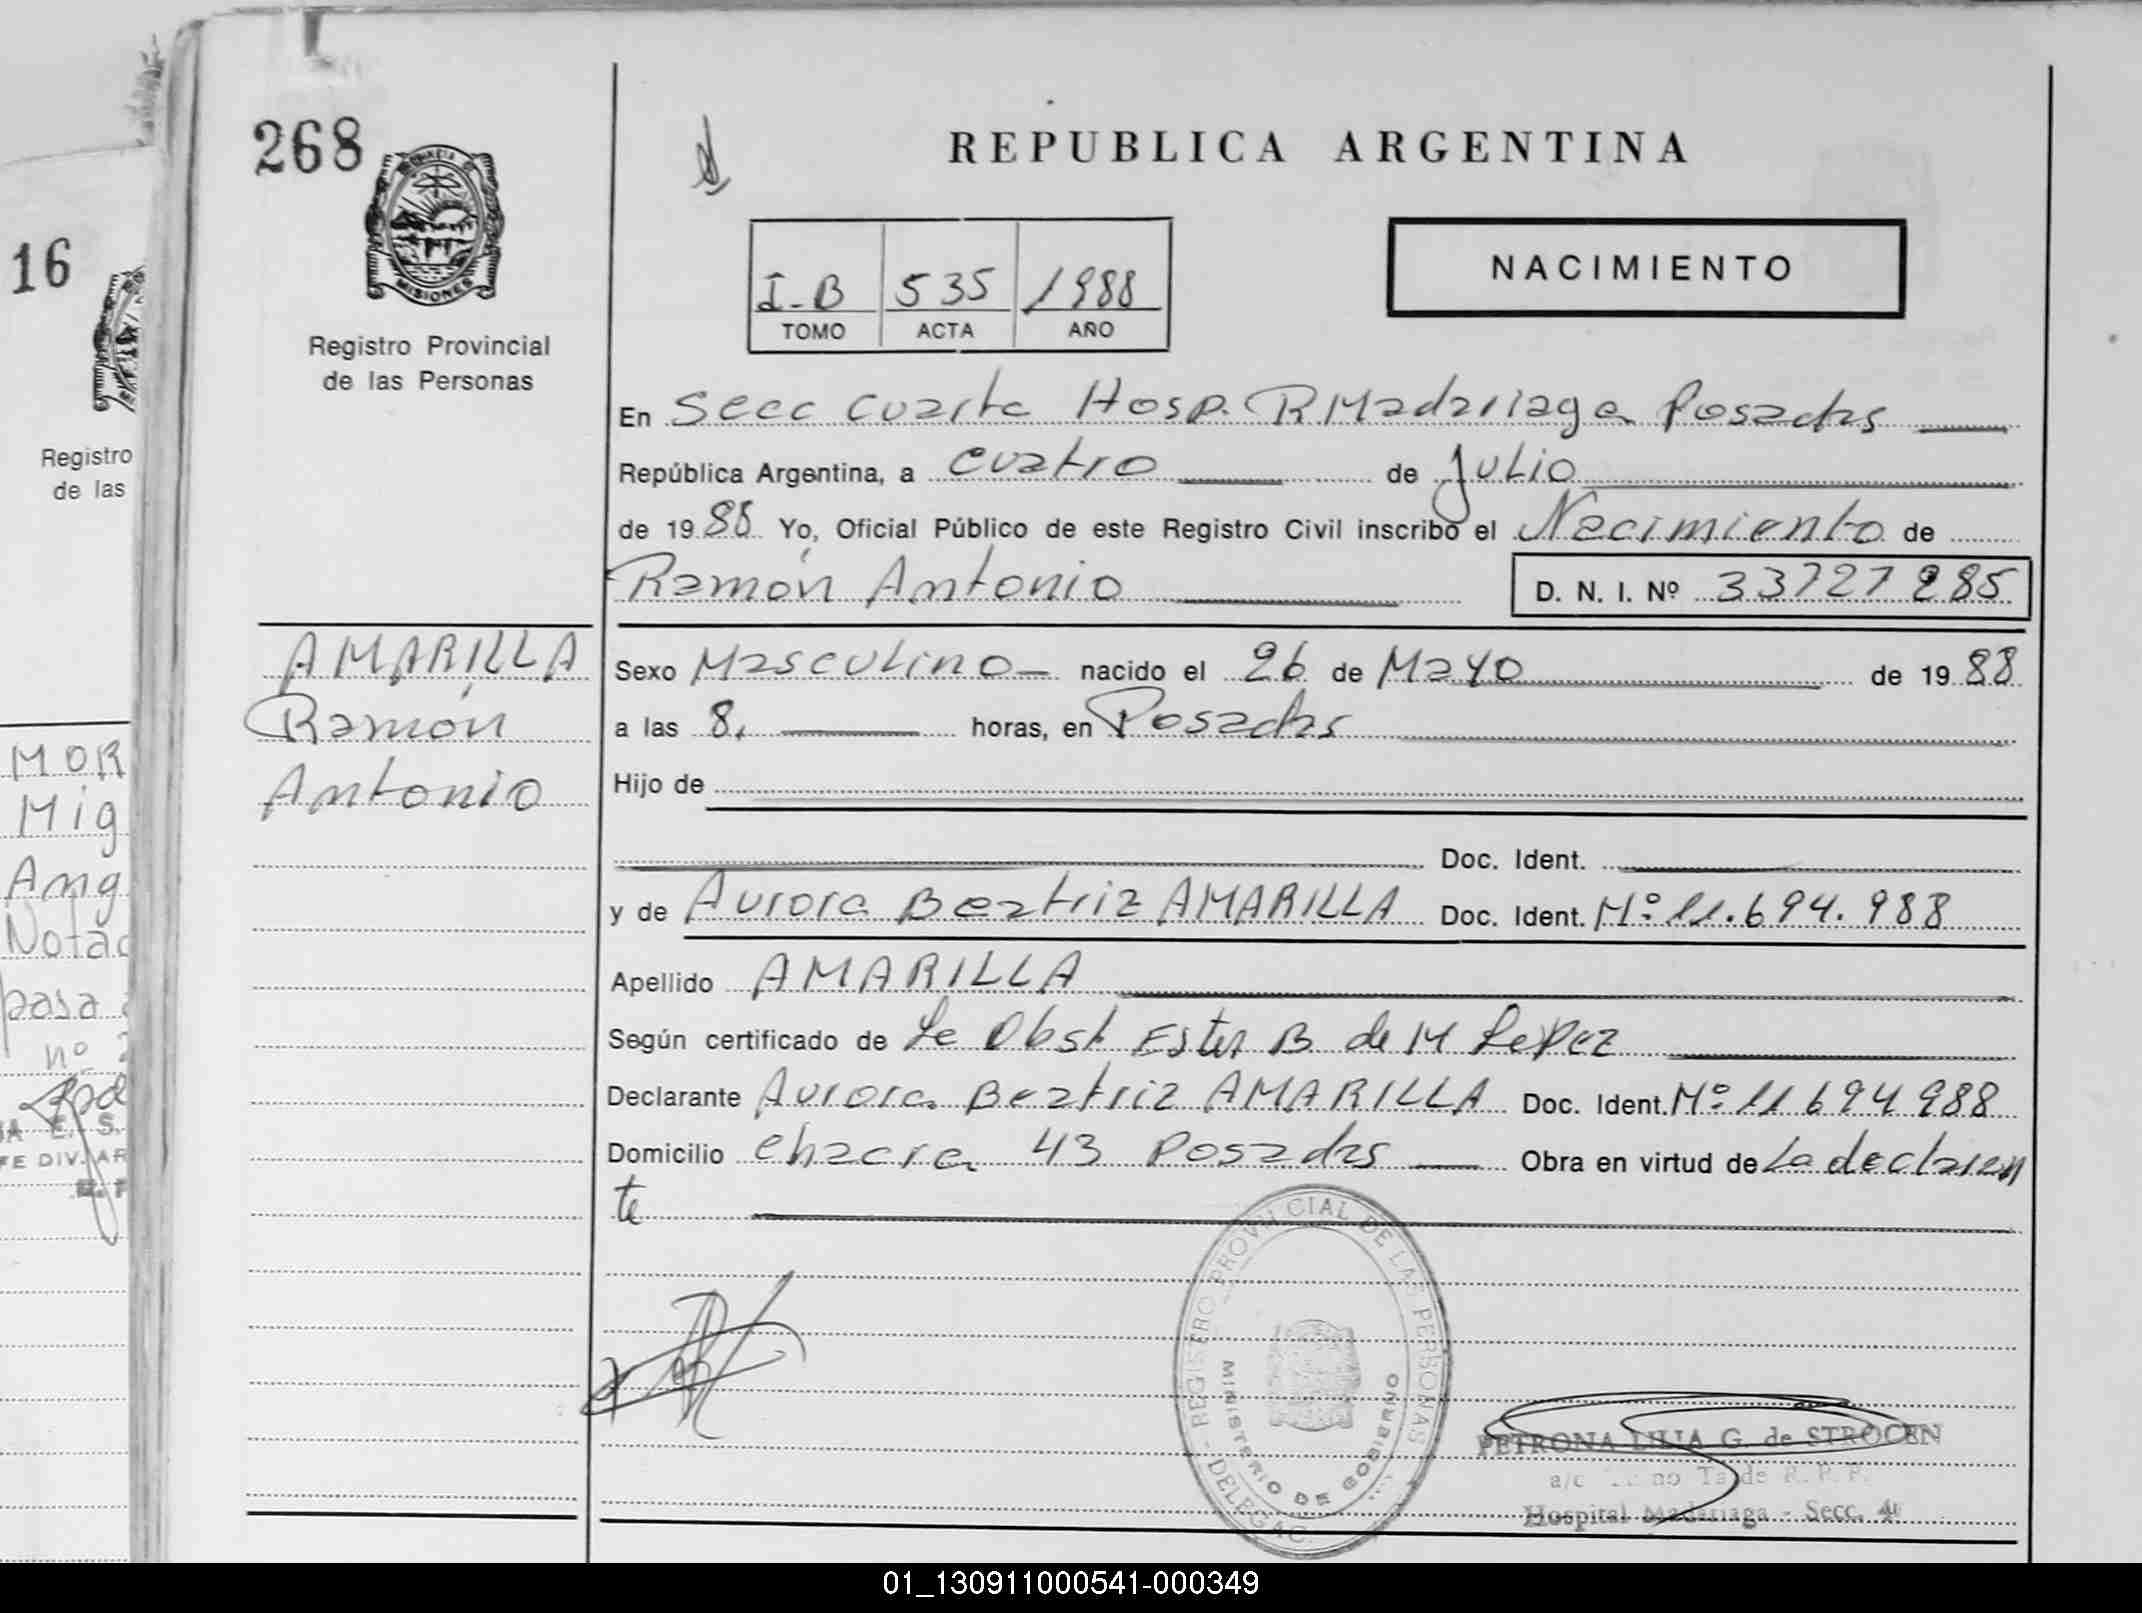 268
PROVINCIA DE
MISIONES
Registro Provincial
de las Personas
REPUBLICA ARGENTINA
NACIMIENTO
I-B 535 1988
TOMO ACTA AÑO
En Secc Cuarta Hosp. R Madariaga Posadas
República Argentina, a cuatro de Julio
de 1988 Yo, Oficial Público de este Registro Civil inscribo el Nacimiento de
Ramón Antonio D. N. I. Nº 33727285
AMARILLA
Ramón
Antonio
Sexo Masculino nacido el 26 de Mayo de 1988
a las 8, horas, en Posadas
Hijo de
Doc. Ident.
y de Aurora Beatriz AMARILLA Doc. Ident. Mº 11.694.988
Apellido AMARILLA
Según certificado de La Obst Ester B de M Lopez
Declarante Aurora Beatriz AMARILLA Doc. Ident. Mº 11694988
Domicilio chacra 43 Posadas Obra en virtud de La declaran
te
REGISTRO PROVINCIAL DE LAS PERSONAS
MINISTERIO DE GOBIERNO
- DELEGAC.
PETRONA LILIA G. de STROCEN
a/c no Tarde R. P. P.
Hospital Madariaga - Secc. 4ª
16
Registro
de las
MOR
Mig
Ang
Notac
pasa
nº
E. S.
FE DIV. AR
01_130911000541-000349